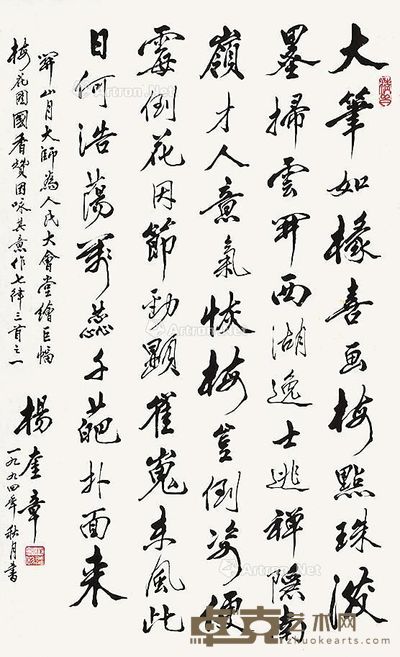 大筆如椽喜画梅點珠潑
墨掃雲開西湖逸士逃禪隱南
嶺才人意氣恢梅豈倒姿便
霉倒花因節勁顯崔嵬東風此
日何浩蕩萬蕊千葩扑面来
關山月大師為人民大會堂繪巨幅
梅花图國香贊因咏其意作七律三首之一
楊奎章
一九九四年秋月書
卓克艺术网